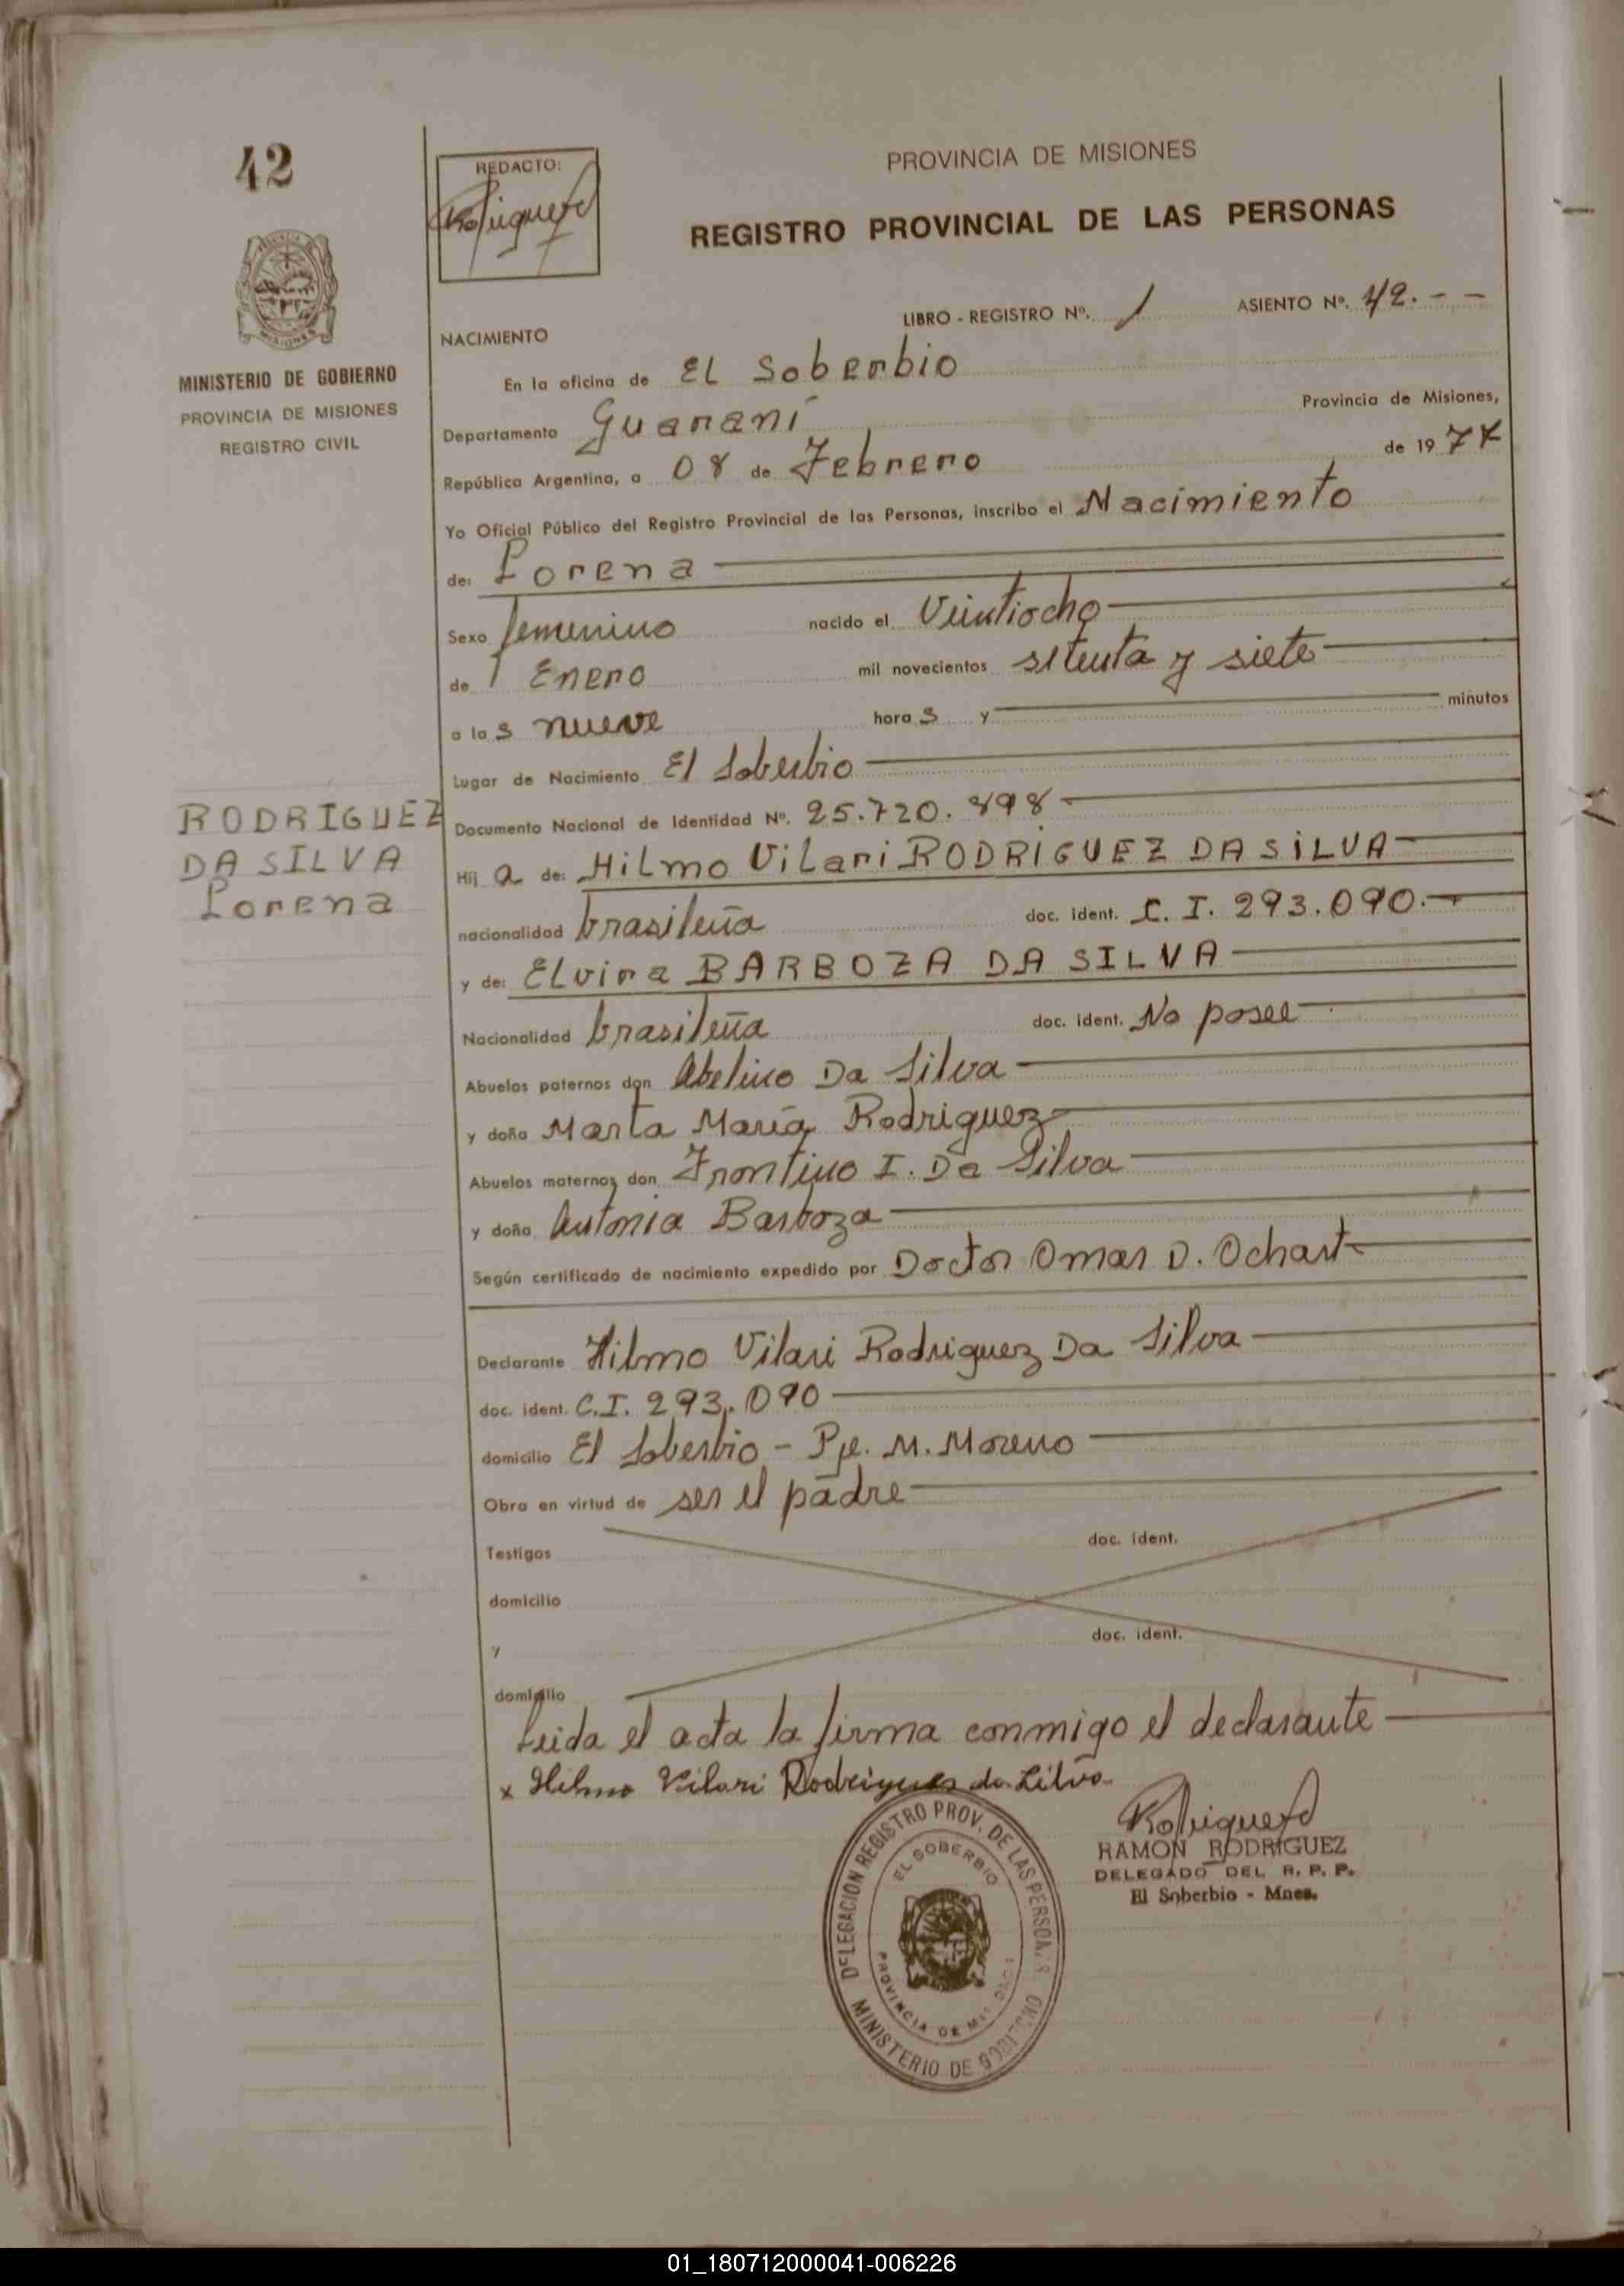 42
REDACTO:
PROVINCIA DE MISIONES
REGISTRO PROVINCIAL DE LAS PERSONAS
MINISTERIO DE GOBIERNO
PROVINCIA DE MISIONES
REGISTRO CIVIL
LIBRO - REGISTRO Nº. 1 ASIENTO Nº. 42. - -
NACIMIENTO
En la oficina de EL Soberbio
Departamento Guaraní Provincia de Misiones,
República Argentina, a 08 de Febrero de 1977
Yo Oficial Público del Registro Provincial de las Personas, inscribo el Nacimiento
de: Lorena
Sexo femenino nacido el Veintiocho
de Enero mil novecientos setenta y siete
a las nueve horas y minutos
Lugar de Nacimiento El Soberbio
RODRIGUEZ
DA SILVA
Lorena
Documento Nacional de Identidad Nº. 25.720.898
Hija de: Hilmo Vilari RODRIGUEZ DA SILVA
nacionalidad brasileña doc. ident. C. I. 293.090.
y de: Elvira BARBOZA DA SILVA
Nacionalidad brasileña doc. ident. No posee
Abuelos paternos don Abelino Da Silva
y doña Marta María Rodriguez
Abuelos maternos don Frontino I. Da Silva
y doña Antonia Barboza
Según certificado de nacimiento expedido por Doctor Omar D. Ochart
Declarante Hilmo Vilari Rodriguez Da Silva
doc. ident. C.I. 293.090
domicilio El Soberbio - Pje. M. Moreno
Obra en virtud de ser el padre
Testigos doc. ident.
domicilio
y doc. ident.
domicilio
Leida el acta la firma conmigo el declarante
x Hilmo Vilari Rodrigues da Silva
DELEGACION REGISTRO PROV. DE LAS PERSONAS
EL SOBERBIO
PROVINCIA DE MISIONES
MINISTERIO DE GOBIERNO
RAMON RODRIGUEZ
DELEGADO DEL R. P. P.
El Soberbio - Mnes.
01_180712000041-006226